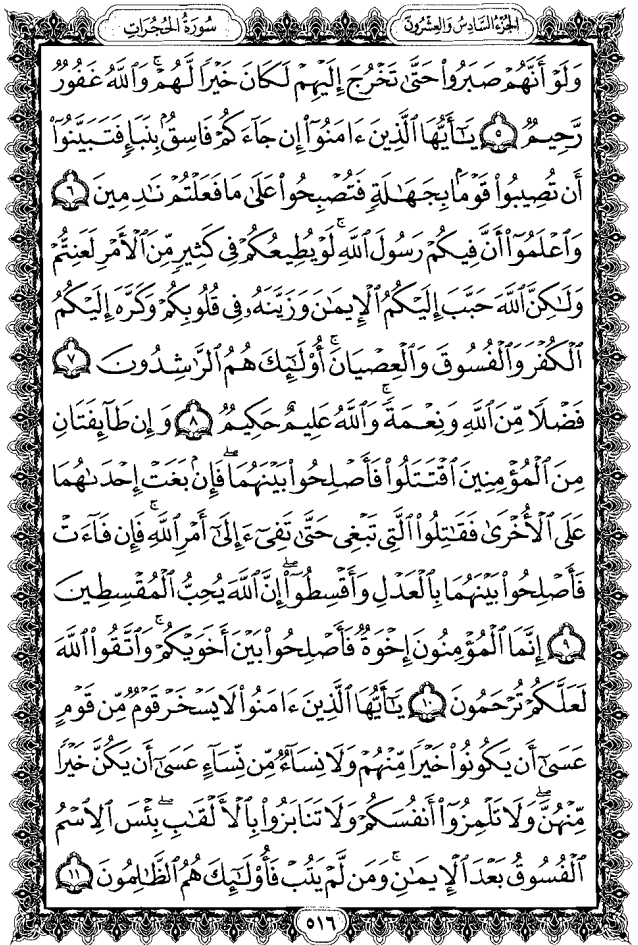 الجزء السادس والعشرون
سورة الحجرات
وَلَوْ أَنَّهُمْ صَبَرُوا۟ حَتَّىٰ تَخْرُجَ إِلَيْهِمْ لَكَانَ خَيْرًا لَّهُمْ ۚ وَٱللَّهُ غَفُورٌ
رَّحِيمٌ ٥ يَـٰٓأَيُّهَا ٱلَّذِينَ ءَامَنُوٓا۟ إِن جَآءَكُمْ فَاسِقٌۢ بِنَبَإٍ فَتَبَيَّنُوٓا۟
أَن تُصِيبُوا۟ قَوْمًۢا بِجَهَـٰلَةٍ فَتُصْبِحُوا۟ عَلَىٰ مَا فَعَلْتُمْ نَـٰدِمِينَ ٦
وَٱعْلَمُوٓا۟ أَنَّ فِيكُمْ رَسُولَ ٱللَّهِ ۚ لَوْ يُطِيعُكُمْ فِى كَثِيرٍ مِّنَ ٱلْأَمْرِ لَعَنِتُّمْ
وَلَـٰكِنَّ ٱللَّهَ حَبَّبَ إِلَيْكُمُ ٱلْإِيمَـٰنَ وَزَيَّنَهُۥ فِى قُلُوبِكُمْ وَكَرَّهَ إِلَيْكُمُ
ٱلْكُفْرَ وَٱلْفُسُوقَ وَٱلْعِصْيَانَ ۚ أُو۟لَـٰٓئِكَ هُمُ ٱلرَّٰشِدُونَ ٧
فَضْلًا مِّنَ ٱللَّهِ وَنِعْمَةً ۚ وَٱللَّهُ عَلِيمٌ حَكِيمٌ ٨ وَإِن طَآئِفَتَانِ
مِنَ ٱلْمُؤْمِنِينَ ٱقْتَتَلُوا۟ فَأَصْلِحُوا۟ بَيْنَهُمَا ۖ فَإِنۢ بَغَتْ إِحْدَىٰهُمَا
عَلَى ٱلْأُخْرَىٰ فَقَـٰتِلُوا۟ ٱلَّتِى تَبْغِى حَتَّىٰ تَفِىٓءَ إِلَىٰٓ أَمْرِ ٱللَّهِ ۚ فَإِن فَآءَتْ
فَأَصْلِحُوا۟ بَيْنَهُمَا بِٱلْعَدْلِ وَأَقْسِطُوٓا۟ ۖ إِنَّ ٱللَّهَ يُحِبُّ ٱلْمُقْسِطِينَ
٩ إِنَّمَا ٱلْمُؤْمِنُونَ إِخْوَةٌ فَأَصْلِحُوا۟ بَيْنَ أَخَوَيْكُمْ ۚ وَٱتَّقُوا۟ ٱللَّهَ
لَعَلَّكُمْ تُرْحَمُونَ ١٠ يَـٰٓأَيُّهَا ٱلَّذِينَ ءَامَنُوا۟ لَا يَسْخَرْ قَوْمٌ مِّن قَوْمٍ
عَسَىٰٓ أَن يَكُونُوا۟ خَيْرًا مِّنْهُمْ وَلَا نِسَآءٌ مِّن نِّسَآءٍ عَسَىٰٓ أَن يَكُنَّ خَيْرًا
مِّنْهُنَّ ۖ وَلَا تَلْمِزُوٓا۟ أَنفُسَكُمْ وَلَا تَنَابَزُوا۟ بِٱلْأَلْقَـٰبِ ۖ بِئْسَ ٱلِٱسْمُ
ٱلْفُسُوقُ بَعْدَ ٱلْإِيمَـٰنِ ۚ وَمَن لَّمْ يَتُبْ فَأُو۟لَـٰٓئِكَ هُمُ ٱلظَّـٰلِمُونَ ١١
٥١٦